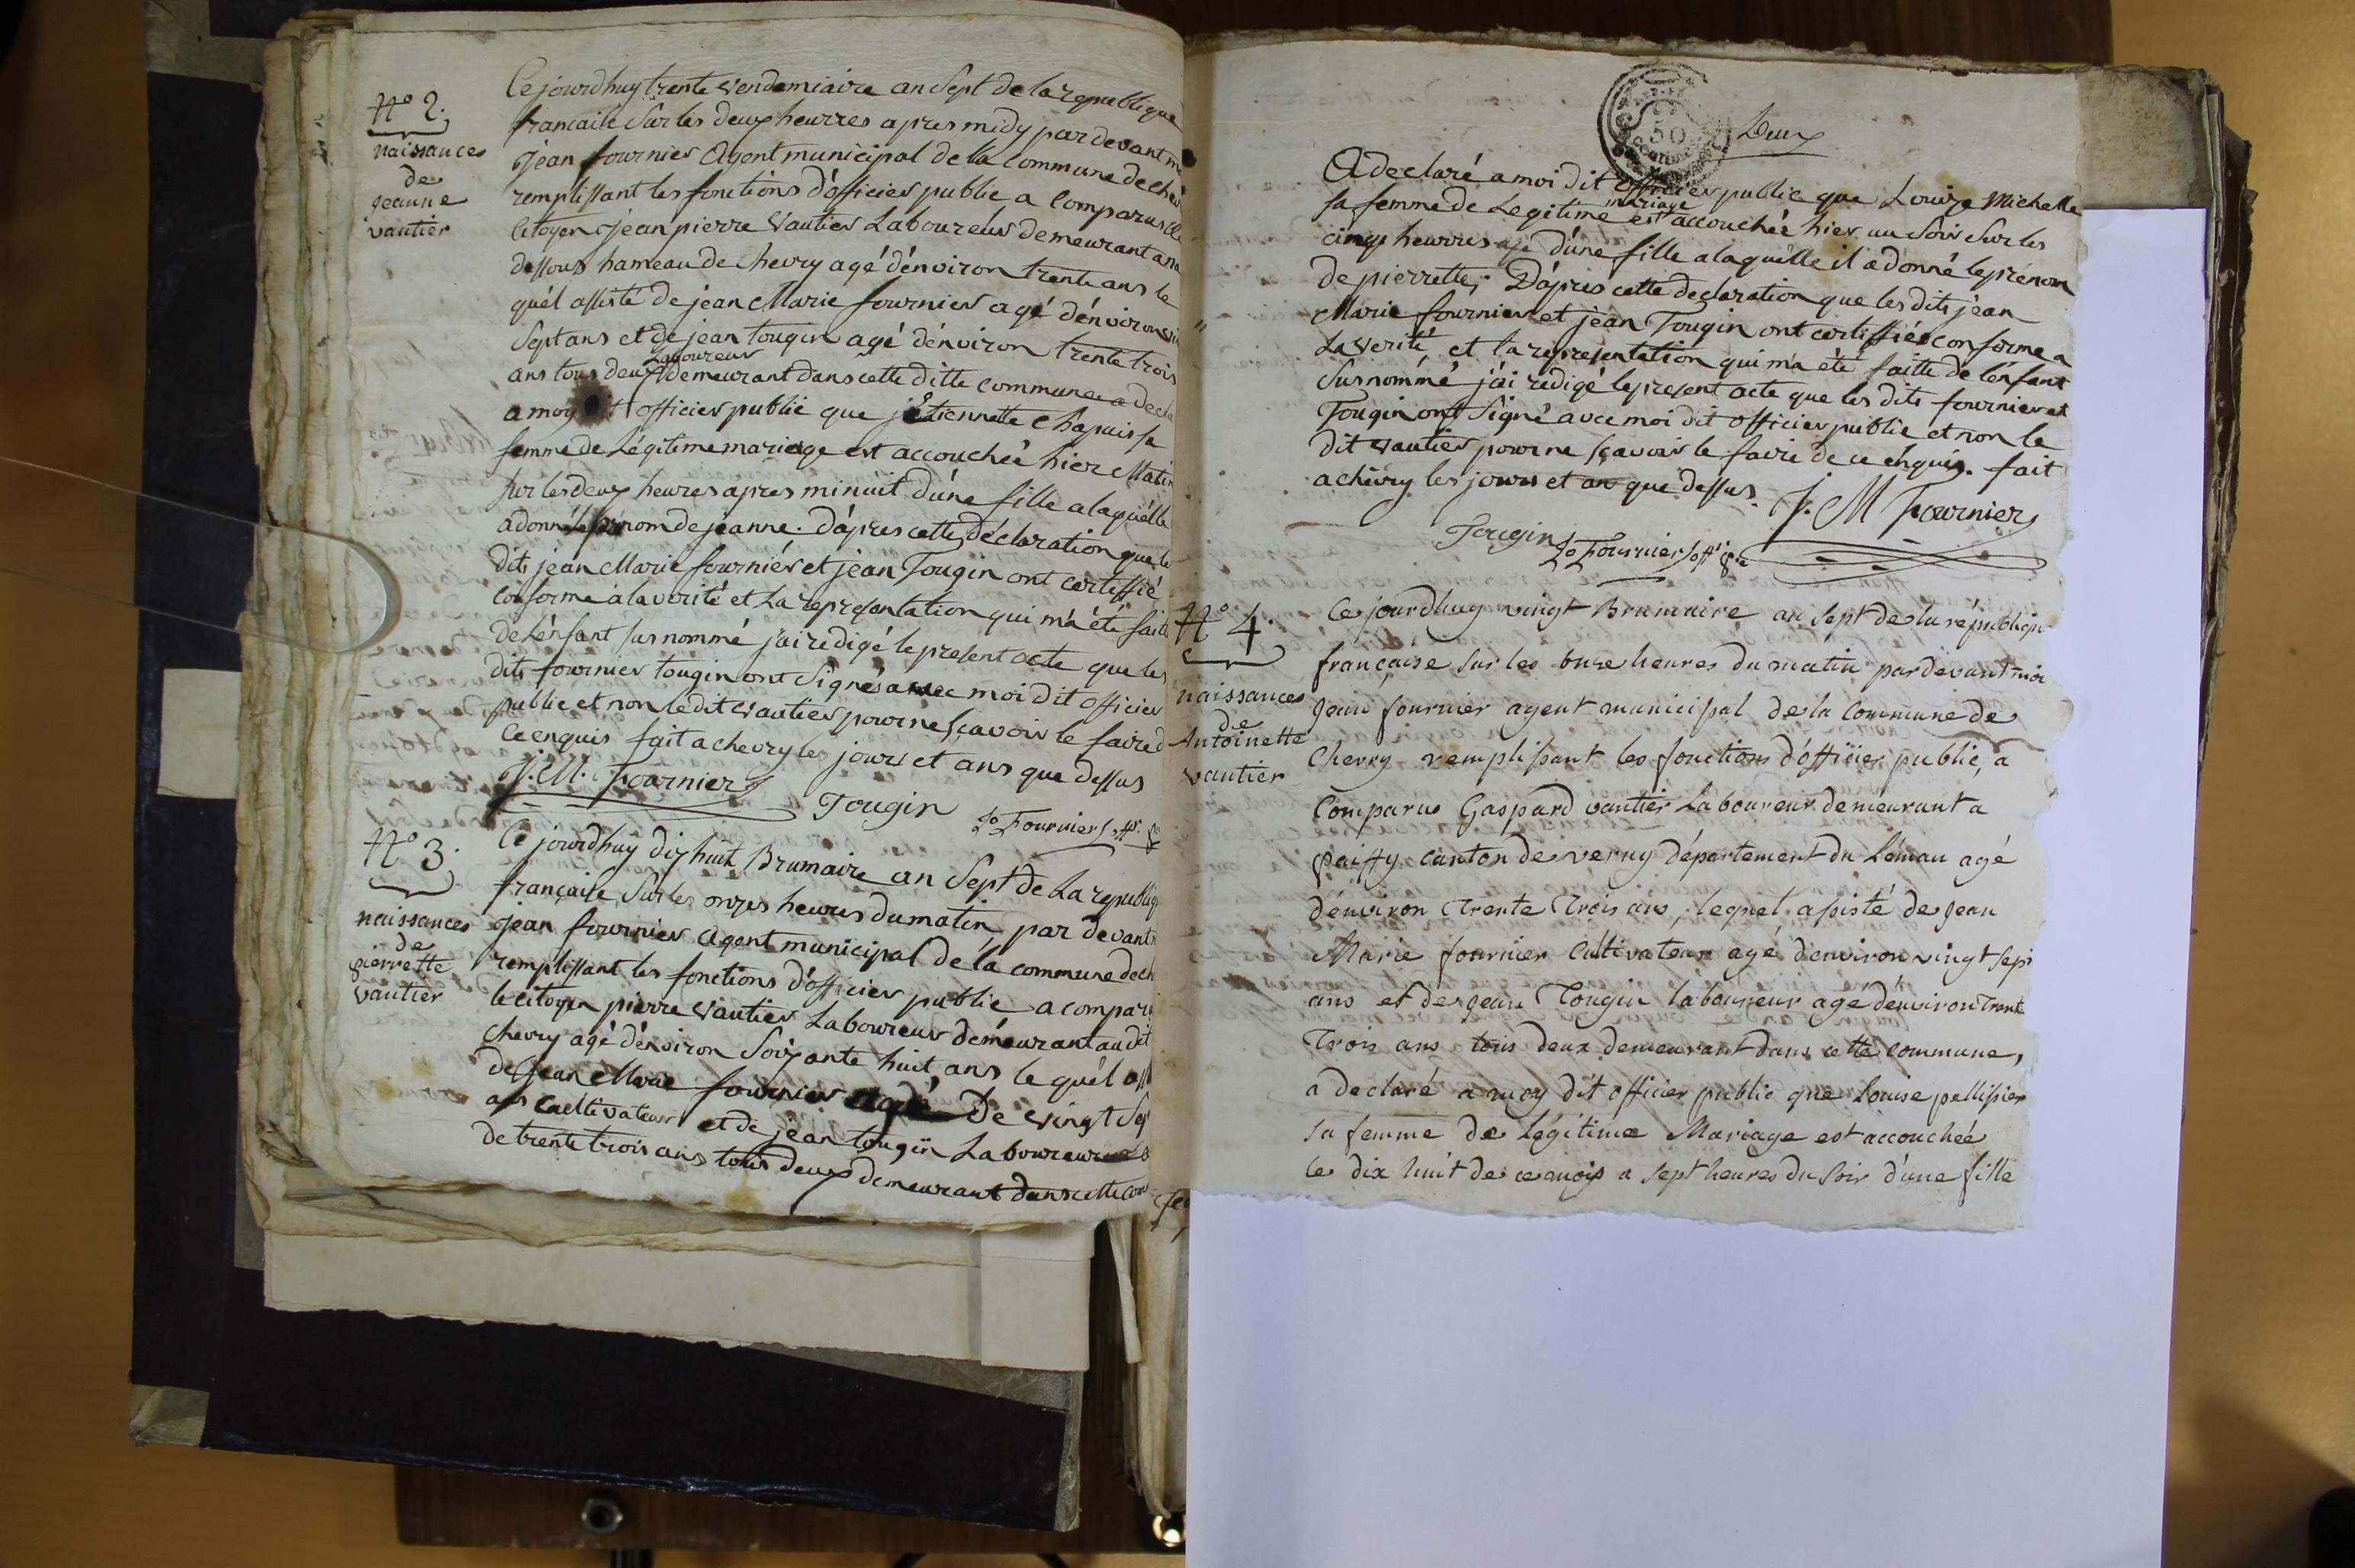 N° 2.
naissances
de
jeanne
vautier
Ce jourdhuy trente vendemiaire an Sept de la republique
francaise Sur les deux heurres apres midy par devant m
jean fournier Agent municipal de la Commune de chev
remplissant les fonctions d'officier public a Comparus le
Citoyen jean pierre vautier Laboureur demeurant a na
dessous hameau de Chevry agé d'énviron trente ans le
quél assisté de jean Marie fournier agé d'énviron vin
Sept ans et de jean tougin agé d'énviron trente trois
Laboureur
ans tous deux demeurant dans cette ditte commune a decla
a moy dit officier public que j Etiennette Chapuis sa
femme de Légitime mariage est accouchée hier Matin
sur les deux heures apres minuit d'une fille a laquélle
a donné le prénom de jeanne. D'apres cette déclaration que le
dits jean Marie fourniér et jean Tougin ont certiffié
Conforme a la verité et La representation qui m'a été faite
de L'énfant sus nommé j'ai redigé le present acte que les
dits fournier tougin ont Signés avec moi dit officier
public et non le dit vautier pour ne sçavoir le faire d
Ce enquis fait a chevry les jours et ans que dessus
J. M. Fournier
Tougin
Jo Fournier off.r p
N° 3.
naissances
de
pierrette
vautier
Ce jourdhuy dix huit Brumaire an Sept de La republiq
française Sur les onzes heures du matin par devant
jean fournier Agent municipal de la commune de ch
remplissant les fonctions d'officier public a compar
le citoyen pierre vautier Laboureur démeurant au dit
chevry agé d'énviron Soixante huit ans le quél ass
de jean Marie fournier agé De vingt Sep
ans Cultivateur et de jean tougin Laboureur
de trente trois ans tous deux demeurant dans cette com
50
centimes
Deux
A declaré a moi dit officier public que Louise Michelle
mariage
sa femme de Legitime est accouchée hier au Soir Sur les
cinqs heurres d'une fille a laquélle il a donné le prénom
de pierrette; D'apres cette declaration que les dits jean
Marie fournier et jean Tougin ont certiffiés conforme a
La verité et la representation qui m'a été faitte de l'énfant
Susnommé j'ai redigé le present acte que les dits fournier et
Tougin ont Signé avec moi dit officier public et non le
dit vautier pour ne sçavoir le faire de ce enquis. fait
a chevry les jours et an que dessus.
J. M Fournier
Tougin
Jo Fournier off.r p.c
N° 4.
naissances
de
Antoinette
vautier
Ce jourdhuy vingt Brumaire an Sept de la républiqu
française sur les onze heures du matin pardevant moi
jean fournier agent municipal de la Commune de
Chevry remplissant les fonctions d'officier public, a
Comparus Gaspard vautier Laboureur demeurant a
canton de département du Léman agé
d'énviron Trente Trois ans, lequel assisté de jean
Marie fournier Cultivateur agé d'environ vingt sept
ans et de jean Tougin laboureur agé d'énviron Trente
Trois ans tous deux demeurant dans cette commune,
a declaré a moy dit officier public que Louise pellissier
sa femme de Légitime Mariage est accouchée
le dix huit de ce mois a sept heures du soir d'une fille